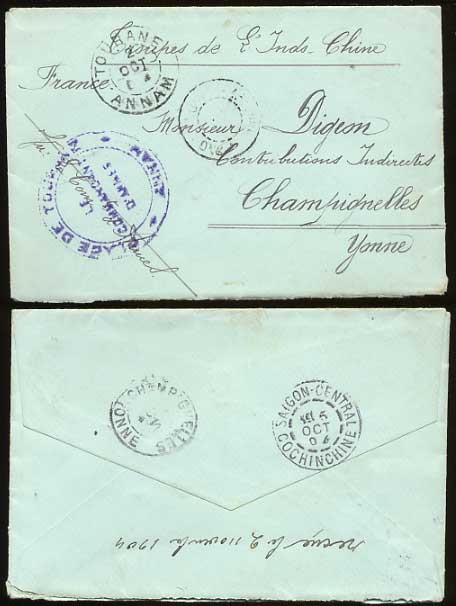 Troupes de L'Indo-Chine
France
Monsieur Digeon
Contributions Indirectes
Champignelles
Yonne
TOURANE
OCT
04
ANNAM
PLACE DE TOURANE
ANNAM
LE COMMANDANT
D'ARMES
CHAMPIGNELLES
YONNE
SAIGON-CENTRAL
5
OCT
04
COCHINCHINE
reçue le 2 novembre 1904